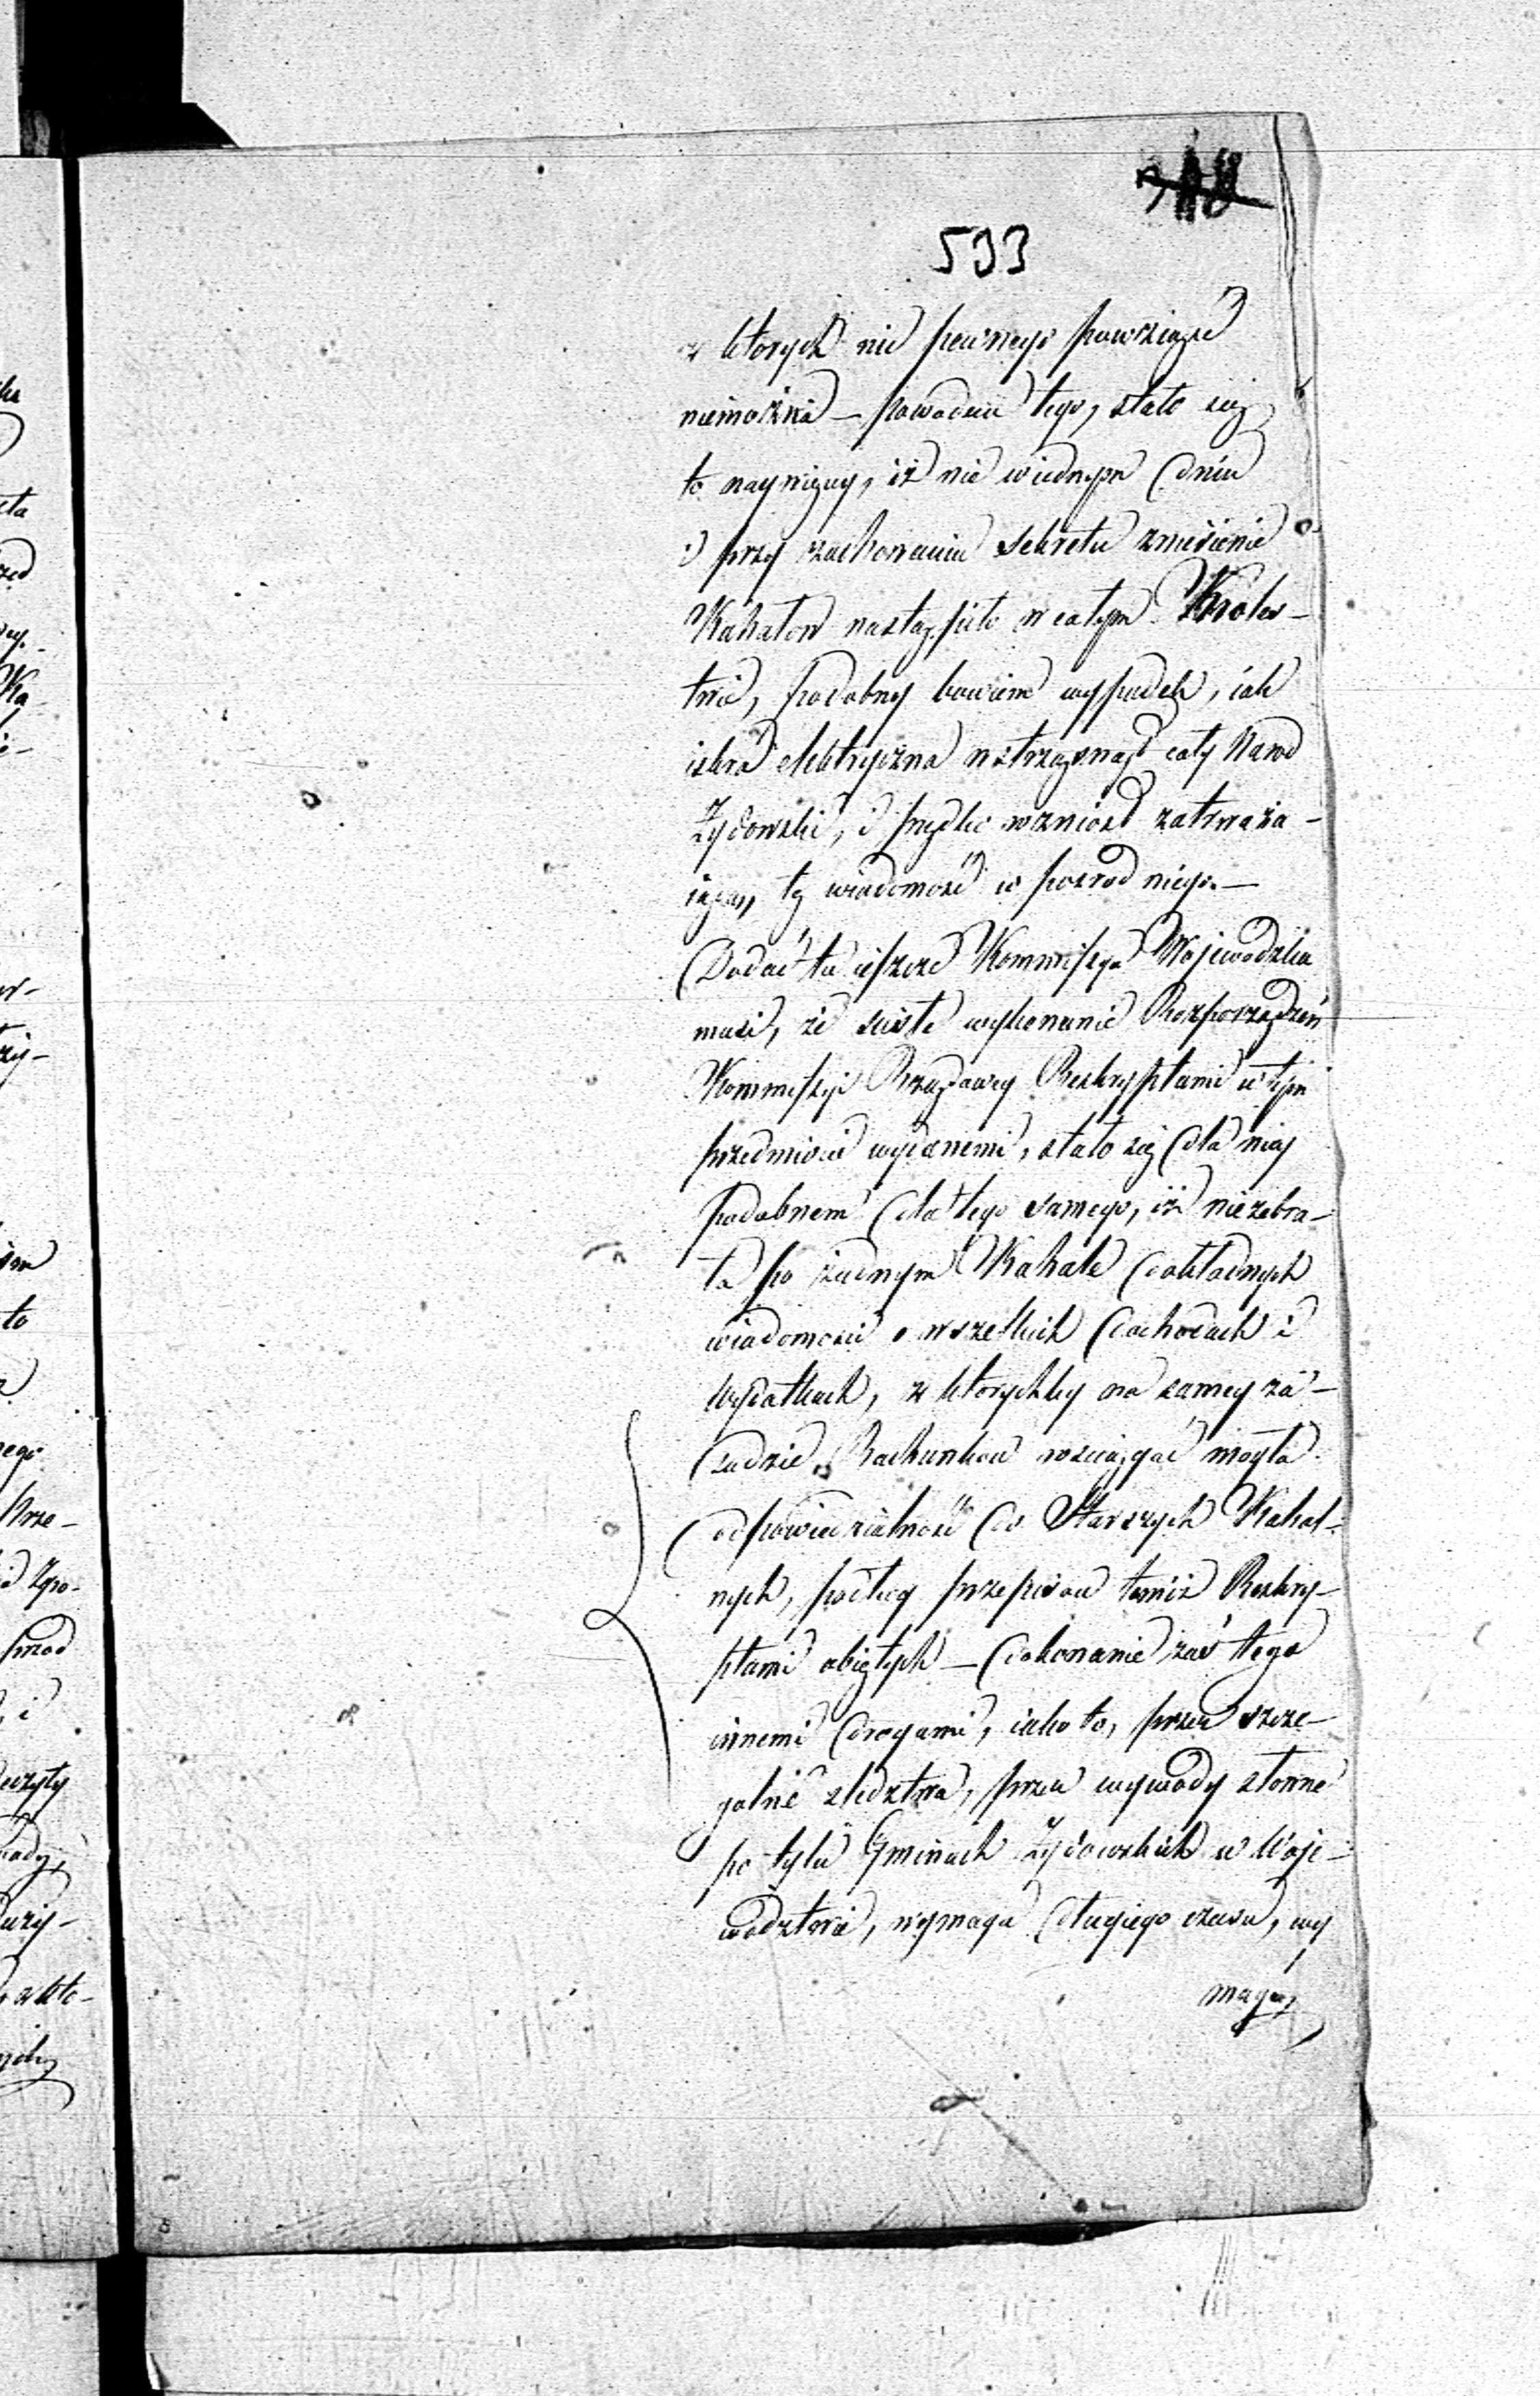 533
z ktorych nic pewnego powziąść
niemożna – powodem tego, stało się
to naywięcey, iż nie wiednym dniu
i przy zachowaniu sekretu zniesienie
Kahałow nastąpiło w całym Krolew-
twie, podobny bowiem wypadek, iak
iskra elektryczna wstrząsnął cały Narod
Żydowski, i prędko wzniosł zatrważa-
iącą tę wiadomość w pośrod niego. –
Dodać tu ieszcze Kommissya Wojewodzka
musi, że ścisłe wykonanie Rozporządzeń
Kommissyi Rządowey Reskryptami w tym
przedmiocie wydanemi, stało się dla niey
podobnem dla tego samego, iż niezebra-
ła po żadnym Kahale dokładnych
wiadomości o wszelkich dochodach i
wydatkach, z ktorychby na samey za-
sadzie Rachunkow rosciągać mogła
odpowiedzialność do Starszych Kahal-
nych, podług przepisow temiż Reskry-
ptami obiętych – dokonanie zaś tego
innemi drogami, iako to, przez szcze-
golne sledztwa, przez wywody słowne
po tylu Gminach Żydowskich w Woje-
wodztwie, wymaga długiego czasu, wy
maga